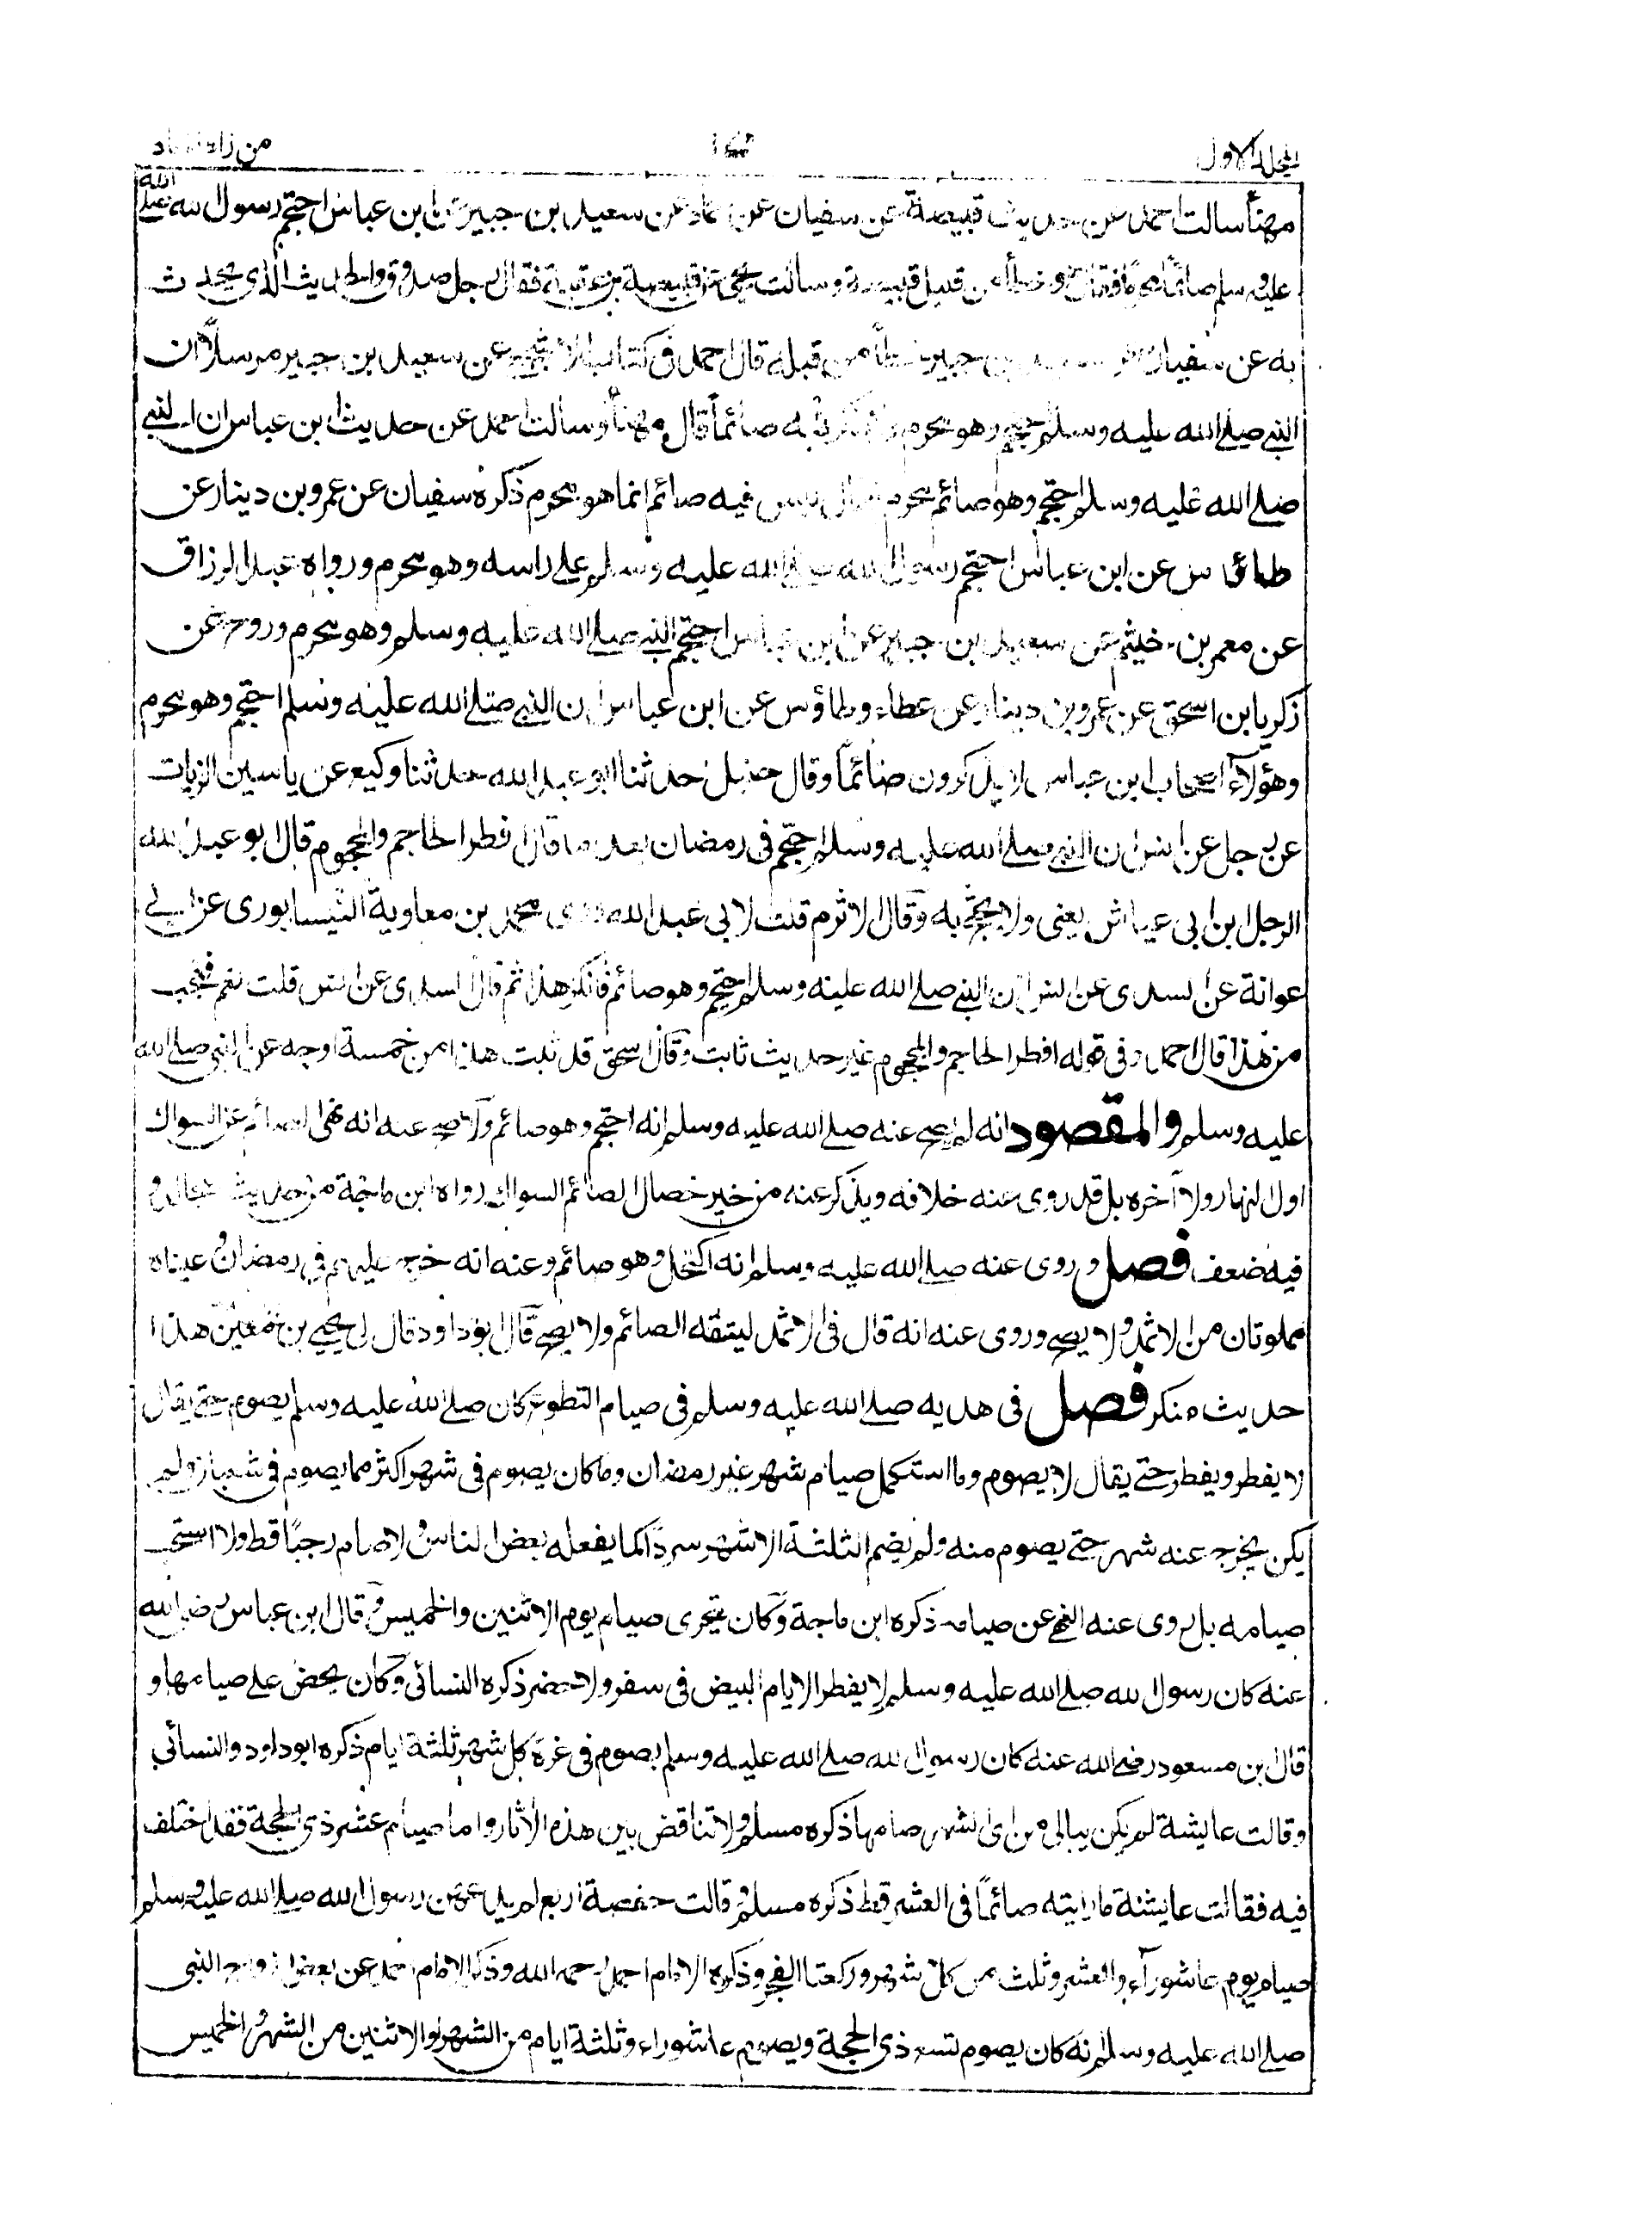 المجلد الاول من زاد
مهنأ سالت احمد عن حديث قبيصة عن سفيان عن حماد عن سعيد بن جبير عن ابن عباس احتجم رسول الله صلى الله
عليه وسلم صائمًا محرمًا فقال هو خطأ من قبل قبيصة وسالت يحيى عن قبيصة بن عقبة فقال رجل صدوق والحديث الذى يحدث
به عن سفيان عن سعيد بن جبير خطأ من قبله قال احمد فى كتاب الاشجعى عن سعيد بن جبير مرسلًا ان
النبى صلى الله عليه وسلم احتجم وهو محرم ولم يذكر فيه صائمًا قال مهنأ وسالت احمد عن حديث ابن عباس ان النبى
صلى الله عليه وسلم احتجم وهو صائم محرم فقال ليس فيه صائم انما هو محرم ذكره سفيان عن عمرو بن دينار عن
طاؤس عن ابن عباس احتجم رسول الله صلى الله عليه وسلم على راسه وهو محرم ورواه عبد الرزاق
عن معمر بن خيثم عن سعيد بن جبير عن ابن عباس احتجم النبى صلى الله عليه وسلم وهو محرم وروح عن
زكريا بن اسحق عن عمرو بن دينار عن عطاء وطاؤس عن ابن عباس ان النبى صلى الله عليه وسلم احتجم وهو محرم
وهؤلآء اصحاب ابن عباس لا يذكرون صائمًا وقال حنبل حدثنا ابو عبد الله حدثنا وكيع عن ياسين الزيات
عن رجل عن انس ان النبى صلى الله عليه وسلم احتجم فى رمضان بعد ما قال افطر الحاجم والمحجوم قال ابو عبد الله
الرجل ابن ابى عياش يعنى ولا يحتج به وقال الاثرم قلت لابى عبد الله روى محمد بن معاوية النيسابورى عن ابى
عوانة عن السدى عن انس ان النبى صلى الله عليه وسلم احتجم وهو صائم فانكر هذا ثم قال السدى عن انس قلت نعم فعجب
من هذا قال احمد وفى قوله افطر الحاجم والمحجوم غير حديث ثابت وقال اسحق قد ثبت هذا من خمسة اوجه عن النبى صلى الله
عليه وسلم والمقصود انه لم يصح عنه صلى الله عليه وسلم انه احتجم وهو صائم ولا صح عنه انه نهى الصائم عن السواك
اول النهار ولا آخره بل قد روى عنه خلافه ويذكر عنه من خير خصال الصائم السواك رواه ابن ماجة من حديث مجالد و
فيه ضعف فصل وروى عنه صلى الله عليه وسلم انه اكتحل وهو صائم وعنه انه خرج عليهم فى رمضان وعيناه
مملوتان من الاثمد ولا يصح وروى عنه انه قال فى الاثمد ليتقه الصائم ولا يصح قال ابو داود قال لى يحيى بن معين هذا
حديث منكر فصل فى هديه صلى الله عليه وسلم فى صيام التطوع كان صلى الله عليه وسلم يصوم حتى يقال
لا يفطر ويفطر حتى يقال لا يصوم وما استكمل صيام شهر غير رمضان وما كان يصوم فى شهر اكثر مما يصوم فى شعبان ولم
يكن يخرج عنه شهر حتى يصوم منه ولم يضم الثلثة الاشهر سردًا كما يفعله بعض الناس ولا صام رجبًا قط ولا استحب
صيامه بل روى عنه النهى عن صيامه ذكره ابن ماجة وكان يتحرى صيام يوم الاثنين والخميس وقال ابن عباس رضى الله
عنه كان رسول الله صلى الله عليه وسلم لا يفطر الايام البيض فى سفر ولا حضر ذكره النسائى وكان يحض على صيامها و
قال ابن مسعود رضى الله عنه كان رسول الله صلى الله عليه وسلم يصوم فى غرة كل شهر ثلثة ايام ذكره ابو داود والنسائى
وقالت عايشة لم يكن يبالى من اى الشهر صامها ذكره مسلم ولا تناقض بين هذه الآثار واما صيام عشر ذى الحجة فقد اختلف
فيه فقالت عايشة ما رايته صائمًا فى العشر قط ذكره مسلم وقالت حفصة اربع لم يدعهن رسول الله صلى الله عليه وسلم
صيام يوم عاشورآء والعشر وثلث من كل شهر وركعتا الفجر وذكره الامام احمد رحمه الله وذكر الامام احمد عن بعض ازواج النبى
صلى الله عليه وسلم انه كان يصوم تسع ذى الحجة ويصوم عاشوراء وثلثة ايام من الشهر او الاثنين من الشهر والخميس